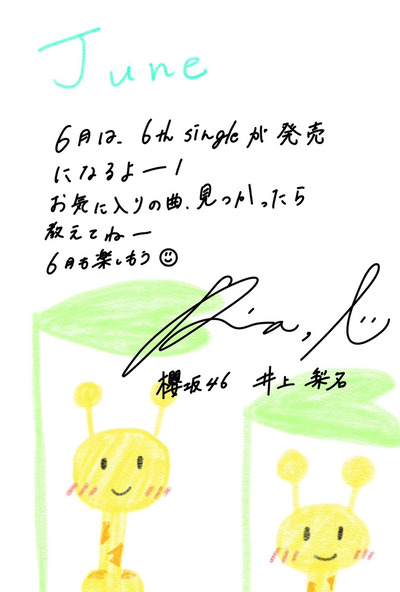 June
6月は、6th singleが発売
になるよー!
お気に入りの曲、見つかったら
教えてねー
6月も楽しもう
Rina, I
櫻坂46 井上 梨名